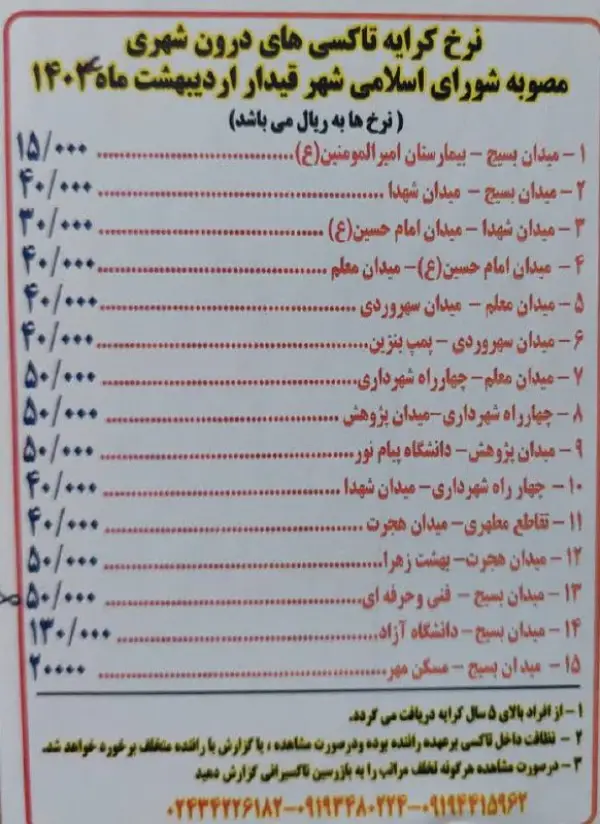 نرخ کرایه تاکسی های درون شهری
مصوبه شورای اسلامی شهر قیدار اردیبهشت ماه ۱۴۰۴
( نرخ ها به ریال می باشد)
۱ – میدان بسیج – بیمارستان امیرالمومنین(ع)................ ۱۵/۰۰۰
۲ – میدان بسیج – میدان شهدا ................ ۴۰/۰۰۰
۳ – میدان شهدا – میدان امام حسین(ع) ................ ۳۰/۰۰۰
۴ – میدان امام حسین(ع)– میدان معلم ................ ۴۰/۰۰۰
۵ – میدان معلم – میدان سهروردی ................ ۴۰/۰۰۰
۶ – میدان سهروردی – پمپ بنزین................ ۴۰/۰۰۰
۷ – میدان معلم– چهارراه شهرداری................ ۵۰/۰۰۰
۸ – چهارراه شهرداری–میدان پژوهش ................ ۵۰/۰۰۰
۹ – میدان پژوهش– دانشگاه پیام نور................ ۵۰/۰۰۰
۱۰ – چهار راه شهرداری– میدان شهدا ................ ۴۰/۰۰۰
۱۱ – تقاطع مطهری– میدان هجرت ................ ۴۰/۰۰۰
۱۲ – میدان هجرت– بهشت زهرا................ ۵۰/۰۰۰
۱۳ – میدان بسیج – فنی وحرفه ای................ ۵۰/۰۰۰
۱۴ – میدان بسیج – دانشگاه آزاد................ ۱۳۰/۰۰۰
۱۵ – میدان بسیج – مسکن مهر................ ۲۰۰۰۰
۱ – از افراد بالای ۵ سال کرایه دریافت می گردد.
۲ – نظافت داخل تاکسی برعهده راننده بوده ودرصورت مشاهده ، یا گزارش با راننده متخلف برخورد خواهد شد.
۳ – درصورت مشاهده هرگونه تخلف مراتب را به بازرسین تاکسیرانی گزارش دهید
۰۲۴۳۴۲۲۶۱۸۲–۰۹۱۹۳۴۸۰۲۲۴–۰۹۱۹۴۴۱۵۹۶۲